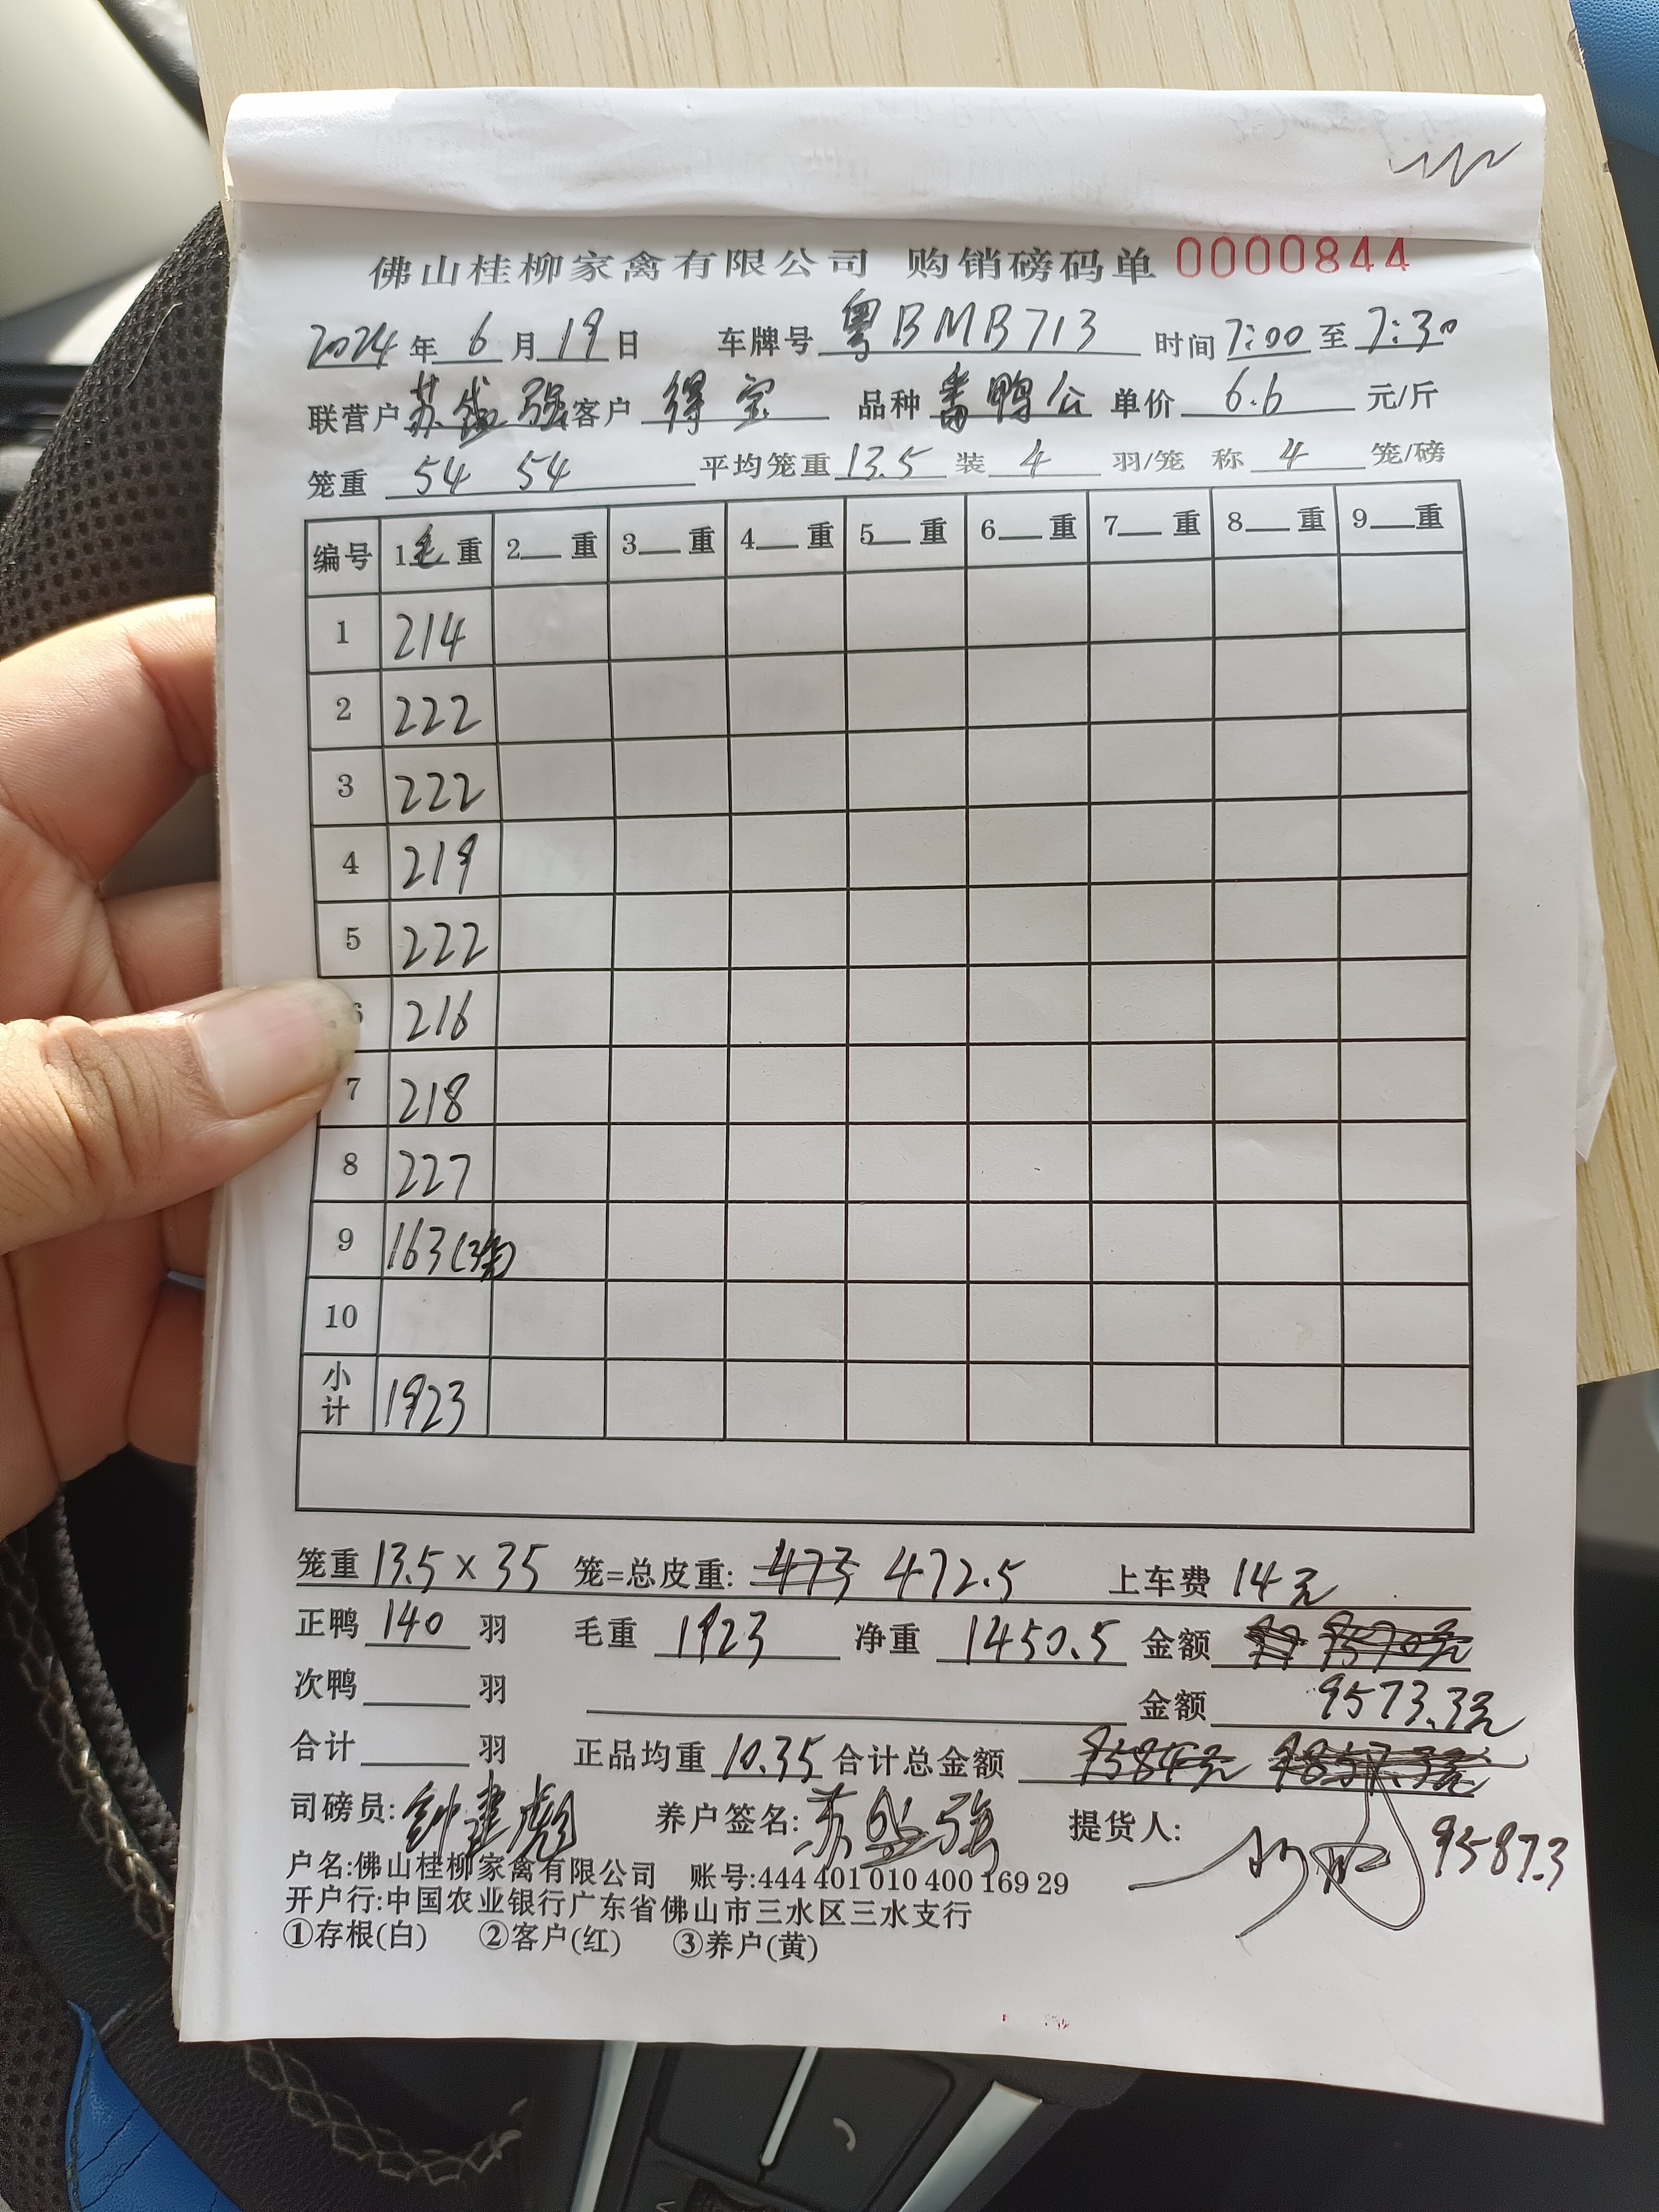 佛山桂柳家禽有限公司 购销磅码单 0000844
2024年 6 月 19 日 车牌号 粤BMB713 时间 7:00 至 7:30
联营户 苏盛强 客户 得宝 品种 番鸭公 单价 6.6 元/斤
笼重 54 54 平均笼重 13.5 装 4 羽/笼 称 4 笼/磅
编号 1毛重 2 重 3 重 4 重 5 重 6 重 7 重 8 重 9 重
1 214
2 222
3 222
4 219
5 222
6 216
7 218
8 227
9 163(3笼)
10
小计 1923
笼重 13.5 × 35 笼=总皮重: 473 472.5 上车费 14元
正鸭 140 羽 毛重 1923 净重 1450.5 金额
次鸭 羽 金额 9573.3元
合计 羽 正品均重 10.35 合计总金额 9584元
司磅员: 钟建彪 养户签名: 苏盛强 提货人: 9587.3
户名:佛山桂柳家禽有限公司 账号:444 401 010 400 169 29
开户行:中国农业银行广东省佛山市三水区三水支行
①存根(白) ②客户(红) ③养户(黄)